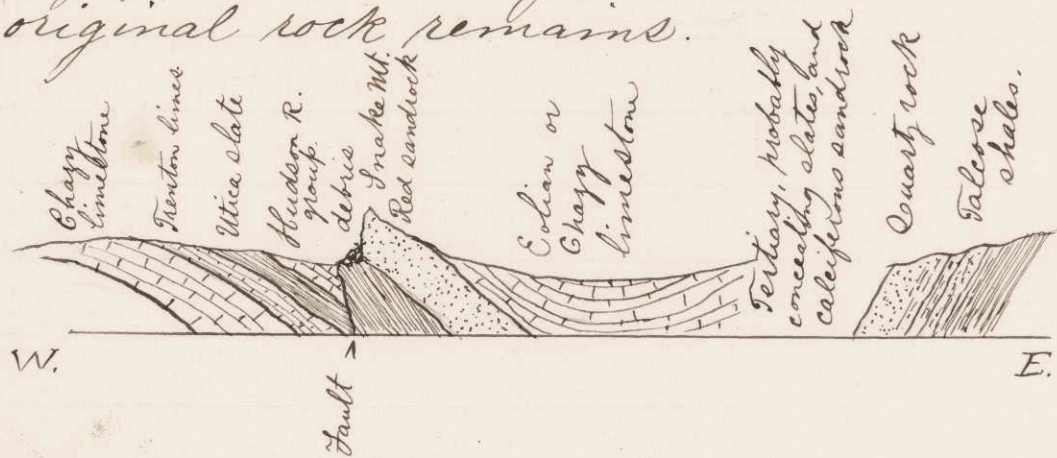 original rock remains.
Chazy
limestone
Trenton limes.
Utica slate
Hudson R.
group.
debris
Snake Mt.
Red sandrock
Eolian or
Chazy
limestone
Tertiary, probably
concealing slates, and
calciferous sandrock
Quartz rock
Talcose
shales.
W.
E.
Fault